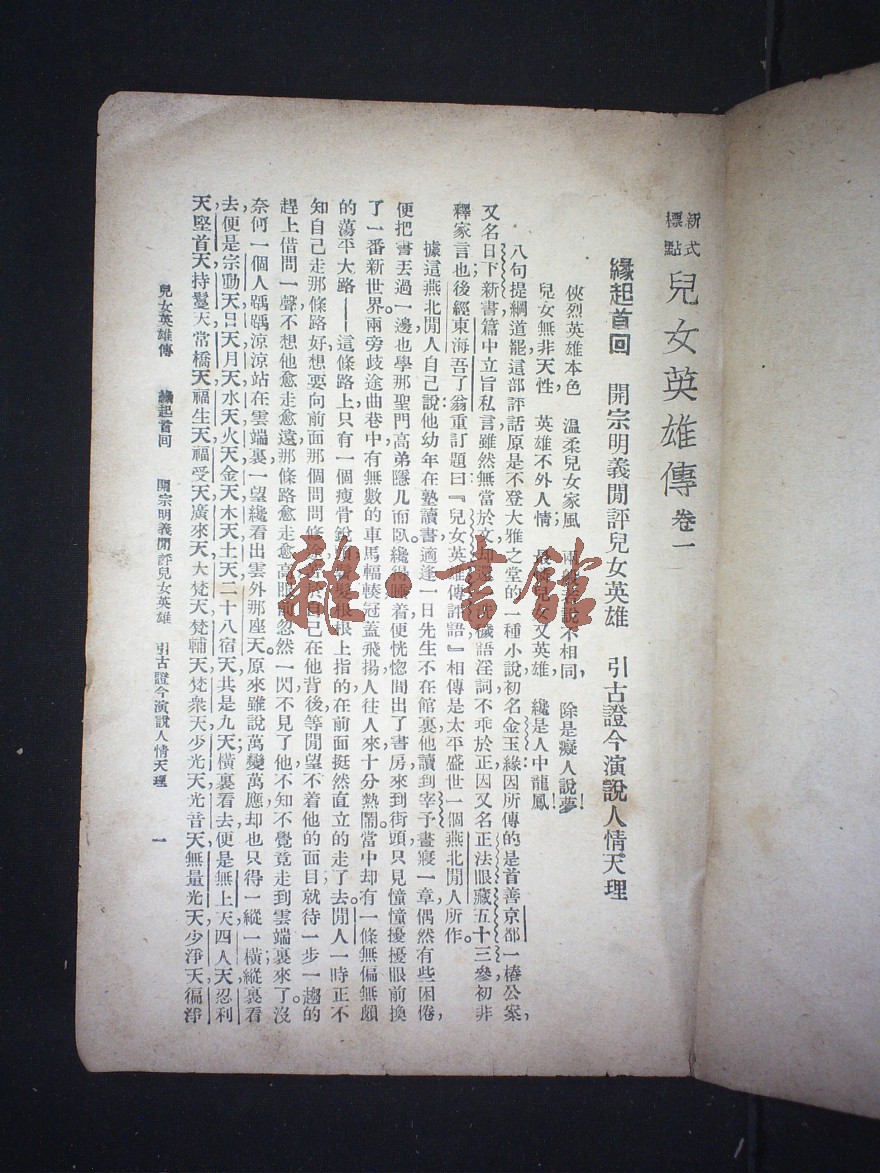 新式標點 兒女英雄傳 卷一
緣起首回 開宗明義閒評兒女英雄 引古證今演說人情天理
俠烈英雄本色 溫柔兒女家風 兩般若說不相同，除是癡人說夢！
兒女無非天性 英雄不外人情 最憐兒女又英雄，纔是人中龍鳳！
八句提綱道罷這部評話原是不登大雅之堂的一種小說初名金玉緣因所傳的是首善京都一樁公案，
又名日下新書篇中立旨私言雖然無當於文却還一洗穢語淫詞不乖於正因又名正法眼藏五十三參初非
釋家言也後經東海吾了翁重訂題曰『兒女英雄傳評話』相傳是太平盛世一個燕北閒人所作。
據這燕北閒人自己說他幼年在塾讀書適逢一日先生不在館裏他讀到宰予晝寢一章偶然有些困倦，
便把書丟過一邊也學那聖門高弟隱几而臥。纔得睡着便恍惚間出了書房來到街頭只見憧憧擾擾眼前換
了一番新世界。兩旁歧途曲巷中有無數的車馬輻輳冠蓋飛揚人往人來十分熱鬧。當中却有一條無偏無頗
的蕩平大路——這條路上只有一個瘦骨銳頭鬢髮根根上指的在前面挺然直立的走了去。閒人一時正不
知自己走那條路好想要向前面那個問問條途苦於自己在他背後等閒望不着他的面目；就待一步一趨的
趕上借問一聲不想他愈走愈遠那條路愈走愈高眼前忽然一閃不見了他不知不覺竟走到雲端裏來了。沒
奈何一個人踽踽涼涼站在雲端裏一望纔看出雲外那座天。原來雖說萬變萬應却也只得一縱一橫縱裏看
去便是宗動天日天月天水天火天金天木天土天二十八宿天共是九天；橫裏看去便是無上天四人天忍利
天堅首天持鬘天常橋天福生天福受天廣來天大梵天梵輔天梵衆天少光天光音天無量光天少淨天徧淨
兒女英雄傳 緣起首回 開宗明義閒評兒女英雄 引古證今演說人情天理 一
雜·書館